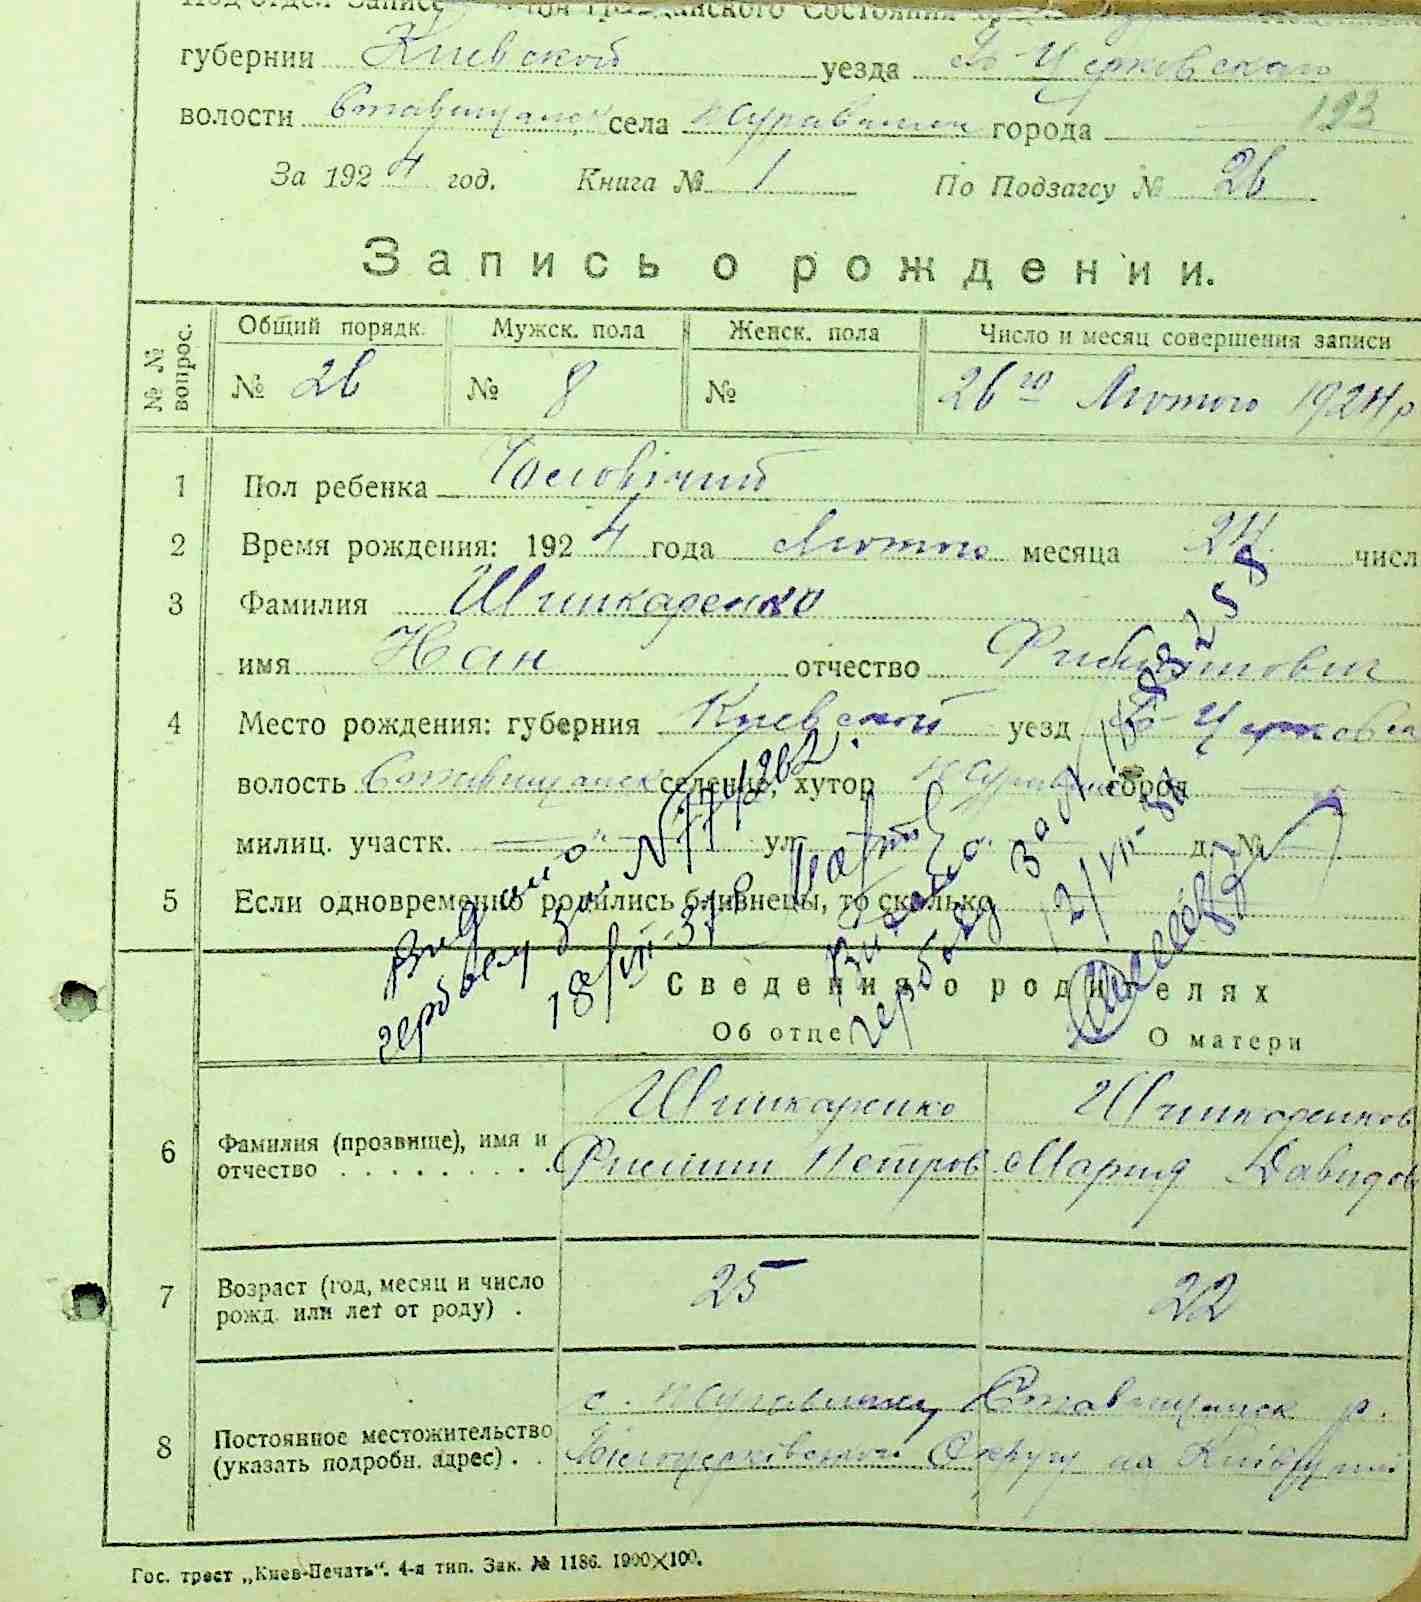 губернии Киевской уезда Б-Церковскаго
волости Ставищанск села Журавлихи города 123
За 1924 год. Книга № 1 По Подзагсу № 26
Запись о рождении.
№ № вопрос. Общий порядк. Мужск. пола Женск. пола Число и месяц совершения записи
№ 26 № 8 № 26го Лютого 1924 р
1 Пол ребенка Чоловічий
2 Время рождения: 1924 года Лютого месяца 24 числ
3 Фамилия Шинкаренко
имя отчество
4 Место рождения: губерния Киевской уезд Б-Церковск
волость Ставищанск селение, хутор город
милиц. участк. — " — ул. д. №
5 Если одновременно родились близнецы, то сколько
Видано
гербову
18/VII-37 р
Видано
12/VII-
Сведения о родителях
Об отце О матери
6 Фамилия (прозвище), имя и отчество Шинкаренко Филип Петров Шинкаренков Мария Давидов
7 Возраст (год, месяц и число рожд. или лет от роду) . 25 22
8 Постоянное местожительство (указать подробн. адрес) . . с. Журавлиха, Ставищанск р.
Білоцерківської Округи на Київщині
Гос. трест „Киев-Печать“. 4-я тип. Зак. № 1186. 1900×100.